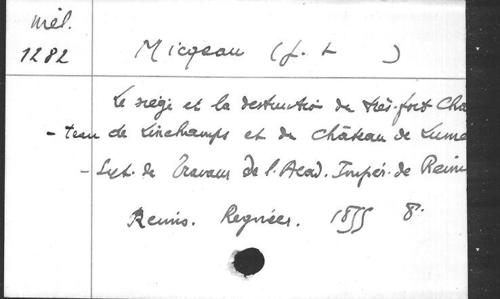 Mél.
1282
Micqeau (J. L )
Le siége et la destruction du très-fort Cha
- teau de Linchamps et du Château de Lume
- Ext. de Travaux de l'Acad. Impér. de Reim
Reims. Regnier. 1855 8°.